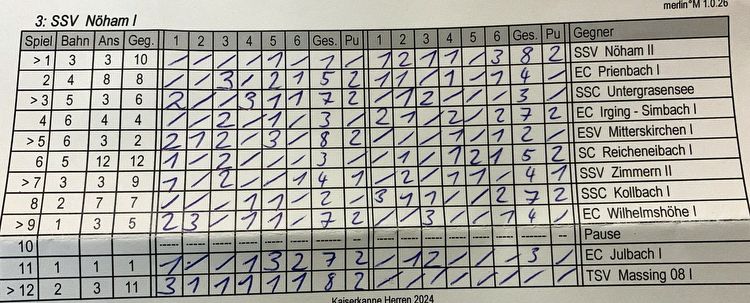 merlin°M 1.0.26
3: SSV Nöham I
Spiel Bahn Ans Geg. 1 2 3 4 5 6 Ges. Pu 1 2 3 4 5 6 Ges. Pu Gegner
> 1 3 3 10 / / / / 1 / 1 / 1 2 1 1 / 3 8 2 SSV Nöham II
2 4 8 8 / / 3 / 2 1 5 2 1 1 / 1 / 1 4 / EC Prienbach I
> 3 5 3 6 2 / / 3 1 1 7 2 / 1 2 / / / 3 / SSC Untergrasensee
4 6 4 4 / / 2 / 1 / 3 / 2 1 / 2 / 2 7 2 EC Irging - Simbach I
> 5 6 3 2 2 1 2 / 3 / 8 2 / / / / 1 1 2 / ESV Mitterskirchen I
6 5 12 12 1 / 2 / / / 3 / / 1 / 1 2 1 5 2 SC Reicheneibach I
> 7 3 3 9 1 / 2 / / 1 4 1 / 2 / 1 1 / 4 1 SSV Zimmern II
8 2 7 7 / / / 1 1 / 2 / 3 1 1 / / 2 7 2 SSC Kollbach I
> 9 1 3 5 2 3 / 1 1 / 7 2 / / 3 / / 1 4 / EC Wilhelmshöhe I
10 ----- ----- ----- ----- ----- ----- ----- --- ----- ----- ----- ----- ----- ----- ----- --- Pause
11 1 1 1 1 / / 1 3 2 7 2 / 1 2 / / / 3 / EC Julbach I
> 12 2 3 11 3 1 1 1 1 1 8 2 / / / / / / / / TSV Massing 08 I
Kaiserkanne Herren 2024